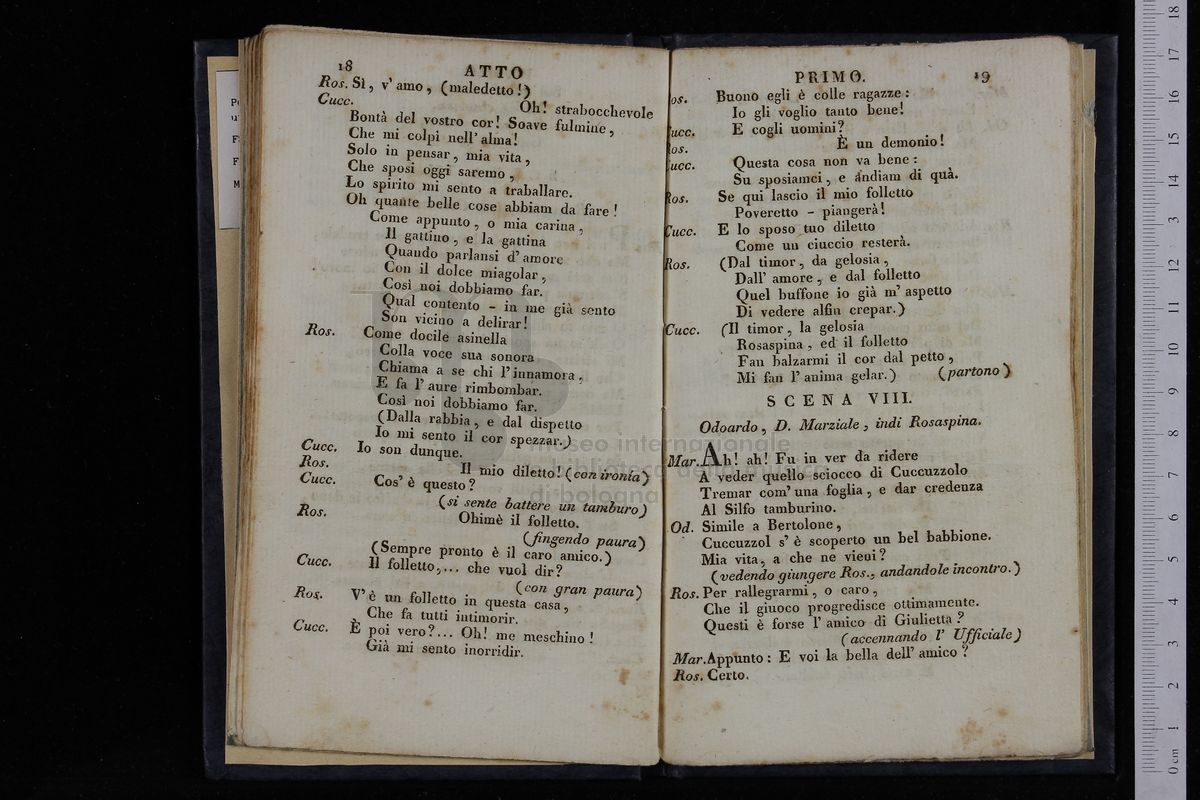 18 ATTO
Ros. Sì, v' amo, (maledetto!)
Cucc. Oh! strabocchevole
Bontà del vostro cor! Soave fulmine,
Che mi colpì nell' alma!
Solo in pensar, mia vita,
Che sposi oggi saremo,
Lo spirito mi sento a traballare.
Oh quante belle cose abbiam da fare!
Come appunto, o mia carina,
Il gattino, e la gattina
Quando parlansi d' amore
Con il dolce miagolar,
Così noi dobbiamo far.
Qual contento - in me già sento
Son vicino a delirar!
Ros. Come docile asinella
Colla voce sua sonora
Chiama a se chi l' innamora,
E fa l' aure rimbombar.
Così noi dobbiamo far.
(Dalla rabbia, e dal dispetto
Io mi sento il cor spezzar.)
Cucc. Io son dunque.
Ros. Il mio diletto! (con ironia)
Cucc. Cos' è questo?
(si sente battere un tamburo)
Ros. Ohimè il folletto.
(fingendo paura)
(Sempre pronto è il caro amico.)
Cucc. Il folletto,... che vuol dir?
(con gran paura)
Ros. V' è un folletto in questa casa,
Che fa tutti intimorir.
Cucc. È poi vero?... Oh! me meschino!
Già mi sento inorridir.
PRIMO. 19
os. Buono egli è colle ragazze:
Io gli voglio tanto bene!
ucc. E cogli uomini?
os. È un demonio!
ucc. Questa cosa non va bene:
Su sposiamci, e andiam di quà.
Ros. Se qui lascio il mio folletto
Poveretto - piangerà!
Cucc. E lo sposo tuo diletto
Come un ciuccio resterà.
Ros. (Dal timor, da gelosia,
Dall' amore, e dal folletto
Quel buffone io già m' aspetto
Di vedere alfin crepar.)
Cucc. (Il timor, la gelosia
Rosaspina, ed il folletto
Fan balzarmi il cor dal petto,
Mi fan l' anima gelar.) (partono)
SCENA VIII.
Odoardo, D. Marziale, indi Rosaspina.
Mar. Ah! ah! Fu in ver da ridere
A veder quello sciocco di Cuccuzzolo
Tremar com' una foglia, e dar credenza
Al Silfo tamburino.
Od. Simile a Bertolone,
Cuccuzzol s' è scoperto un bel babbione.
Mia vita, a che ne vieni?
(vedendo giungere Ros., andandole incontro.)
Ros. Per rallegrarmi, o caro,
Che il giuoco progredisce ottimamente.
Questi è forse l' amico di Giulietta?
(accennando l' Ufficiale)
Mar. Appunto: E voi la bella dell' amico?
Ros. Certo.
museo internazionale
e biblioteca della musica
di bologna
0 cm 1 2 3 4 5 6 7 8 9 10 11 12 13 14 15 16 17 18